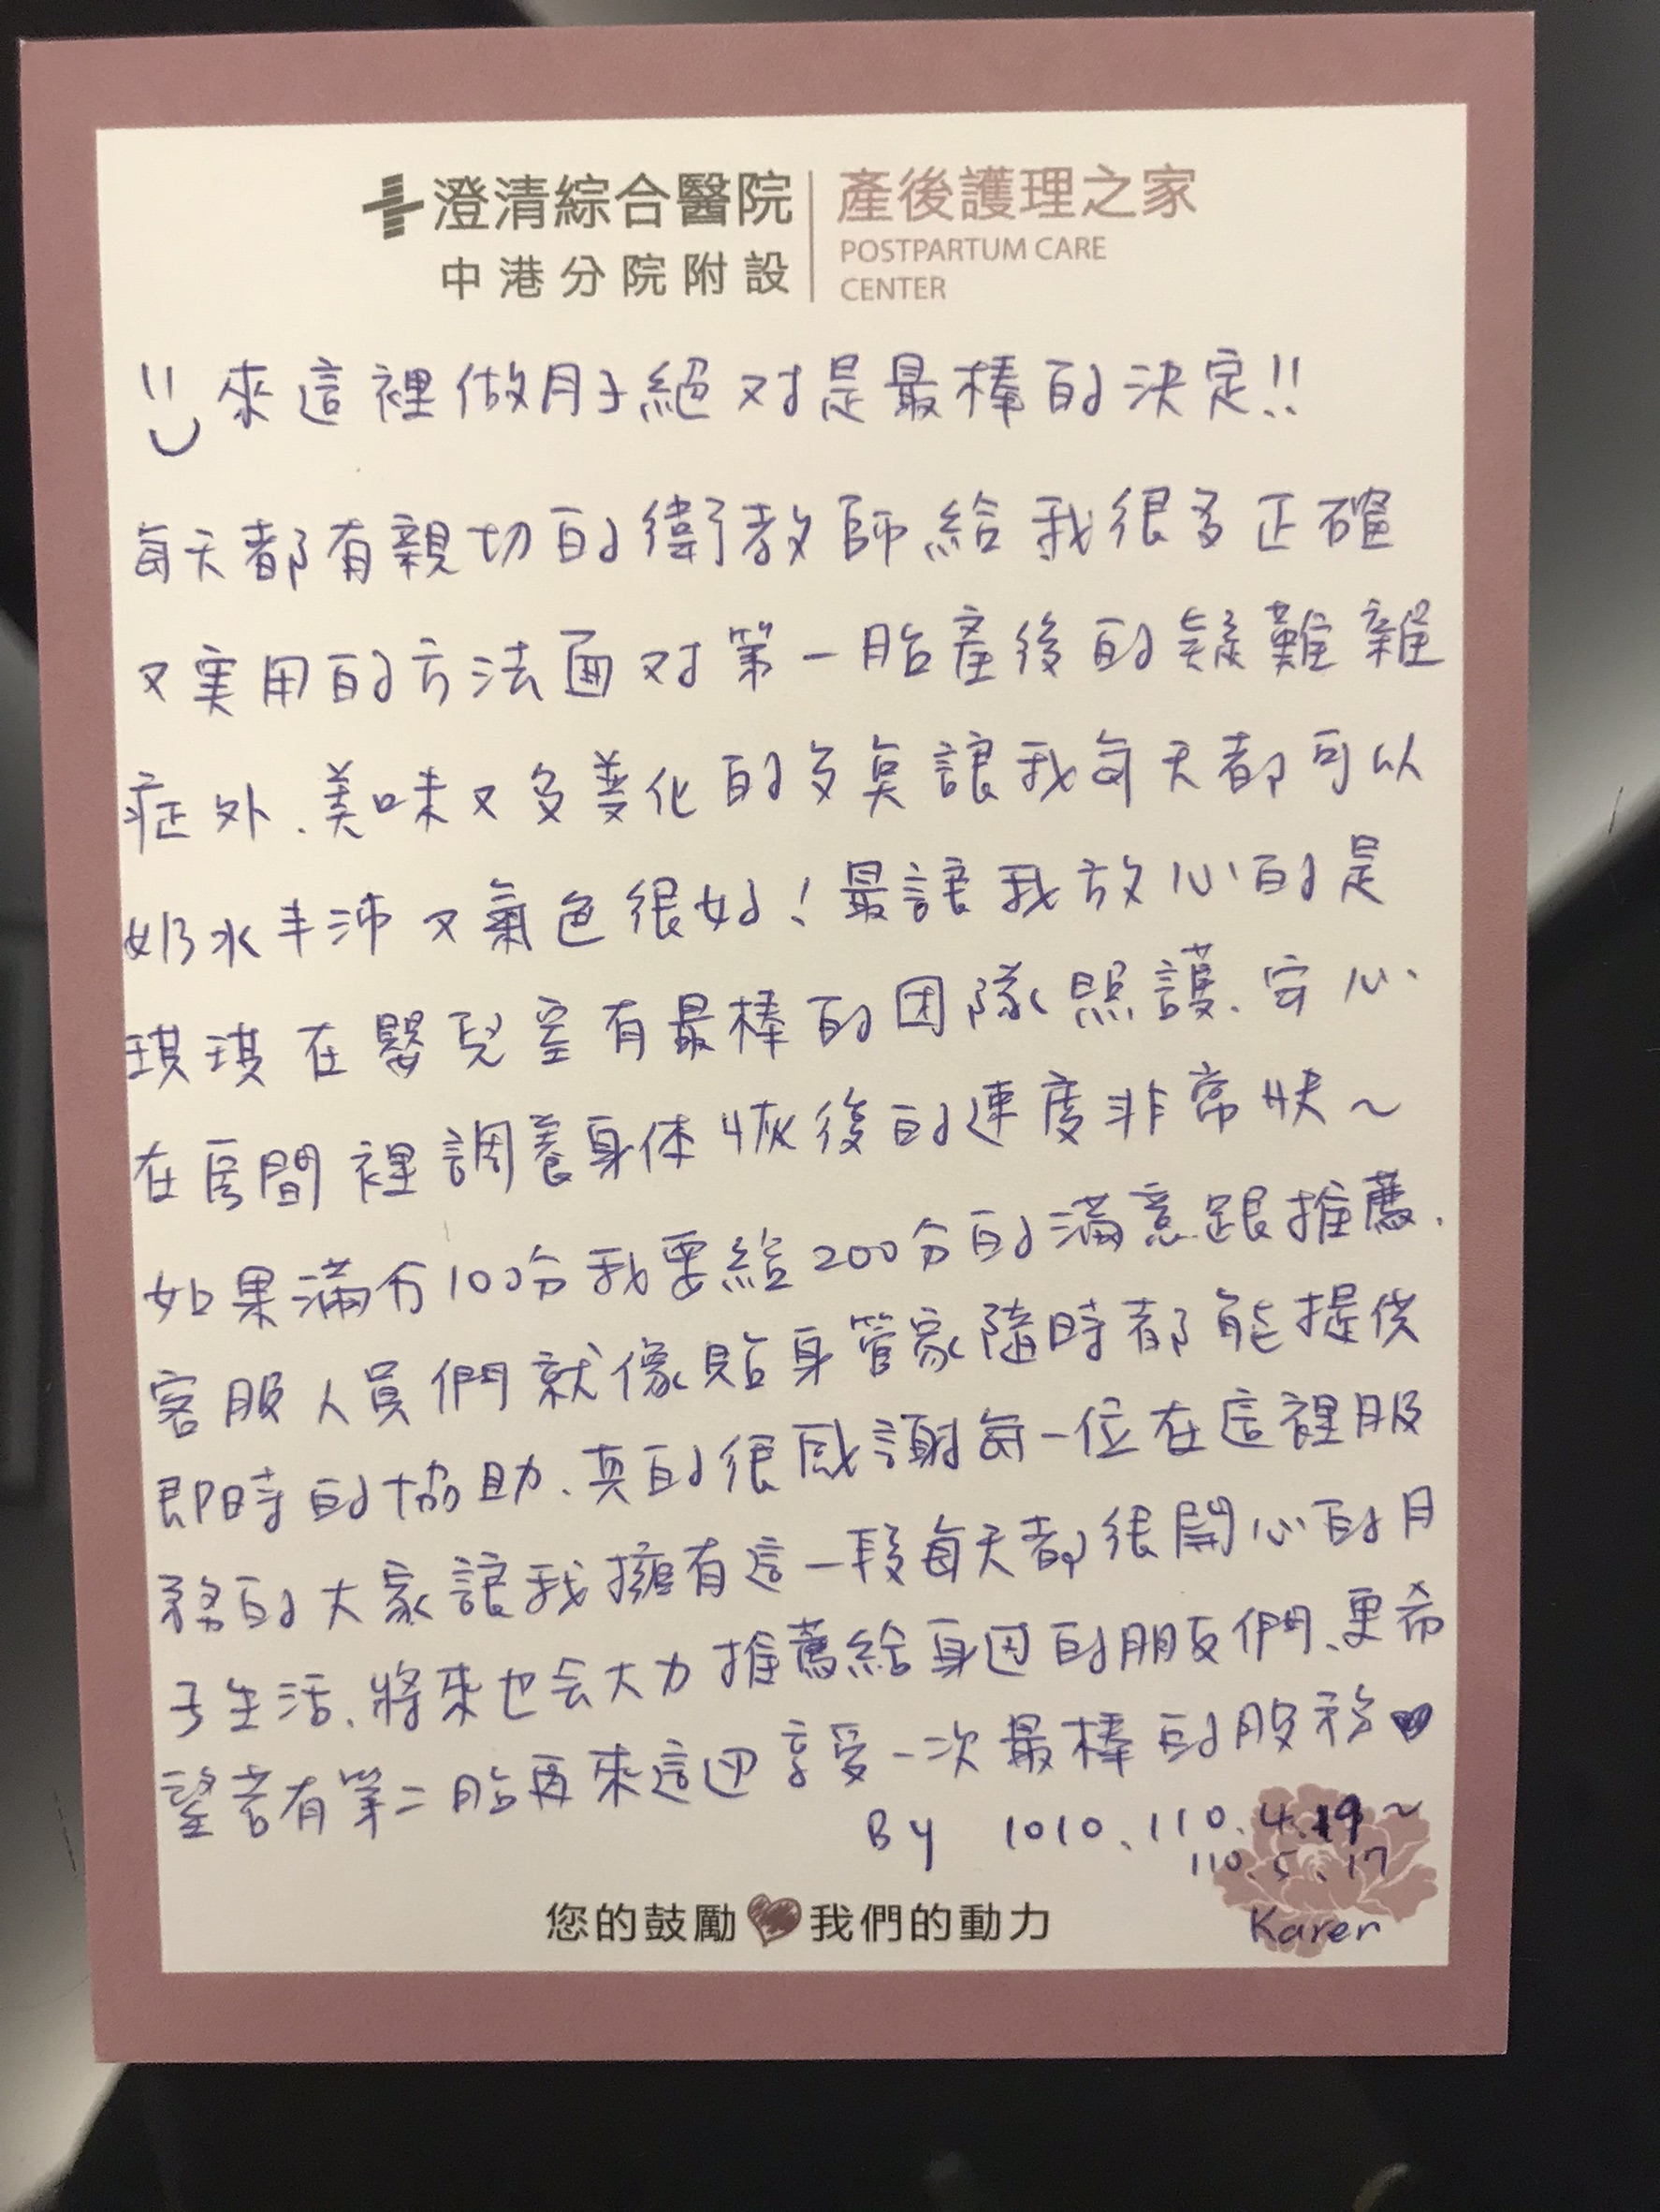 澄清綜合醫院
中港分院附設
產後護理之家
POSTPARTUM CARE
CENTER
來這裡做月子絕对是最棒的決定!!
每天都有親切的衛教師給我很多正確
又實用的方法面对第一胎產後的疑難雜
症外、美味又多變化的多奠讓我每天都可以
奶水丰沛又氣色很好!最讓我放心的是
琪琪在嬰兒室有最棒的团隊照護、安心
在房間裡調養身体恢復的速度非常快~
如果滿分100分我要給200分的滿意跟推薦、
客服人員們就像貼身管家隨時都能提供
即時的協助、真的很感謝每一位在這裡服
務的大家讓我擁有這一段每天都很開心的月
子生活、將來也会大力推薦給身边的朋友們、更希
望若有第二胎再來這边享受一次最棒的服務♥
By 1010、110.4.19~
110.5.17
Karen
您的鼓勵 我們的動力